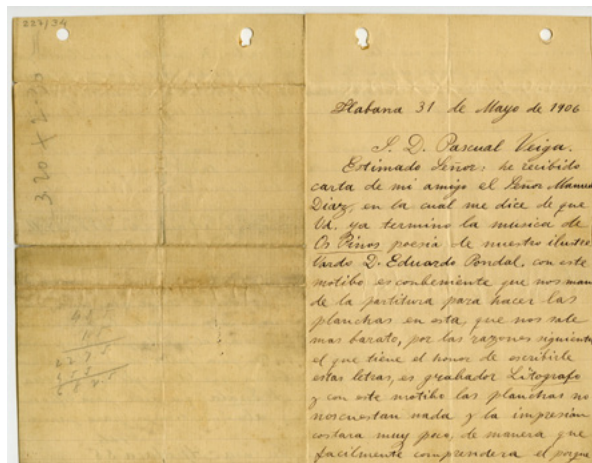 227/34
3.20 + 2.20
Habana 31 de Mayo de 1906
S. D. Pascual Veiga.
Estimado Señor: he recibido
carta de mi amigo el Señor Manuel
Diaz, en la cual me dice de que
Vd. ya termino la musica de
Os Pinos poesia de nuestro ilustre
Vardo D. Eduardo Pondal, con este
motibo es conbeniente que nos man
de la partitura para hacer las
planchas en esta, que nos sale
mas barato, por las razones siguientes
el que tiene el honor de escribirle
estas letras, es grabador Litografo
y con este motibo las planchas no
nos cuestan nada y la impresión
costara muy poco, de manera que
facilmente comprendera el porque